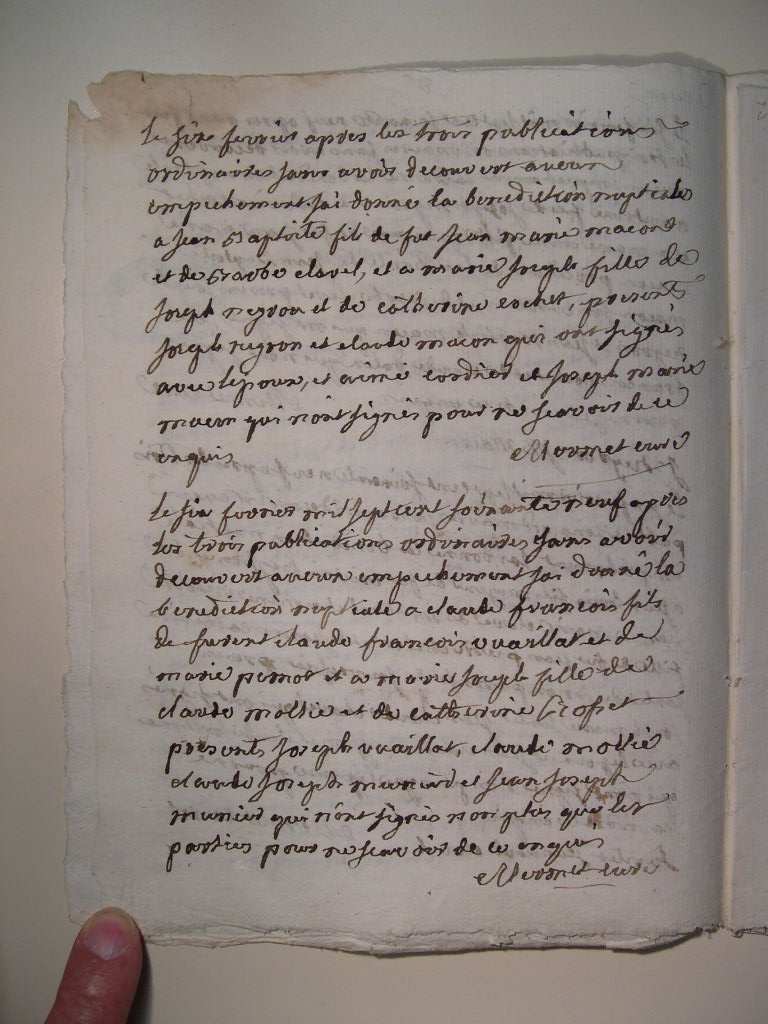 le six fevrier apres les trois publications
ordinaires sans avoir decouvert aucun
empechement j'ai donné la benediction nuptiale
a Jean Baptiste fils de fut Jean marie macon
et de Barbe clavel, et a marie Joseph fille de
Joseph negron et de catherine rochet, presents
Joseph negron et claude macon qui ont signés
avec lepoux, et aimé cordier et Joseph marie
macon qui n'ont signés pour ne scavoir de ce
enquis Mermet curé
le six fevrier mil sept cent soixante neuf apres
les trois publications ordinaires sans avoir
decouvert aucun empechement j'ai donné la
benediction nuptiale a claude francois fils
de furent claude francois vuaillat et de
marie pernot et a marie Joseph fille de
claude mollie et de catherine Grosset
presents Joseph vuaillat, claude mollie
claude Joseph munier et Jean Joseph
munier qui n'ont signés non plus que les
parties pour ne scavoir de ce enquis
Mermet curé